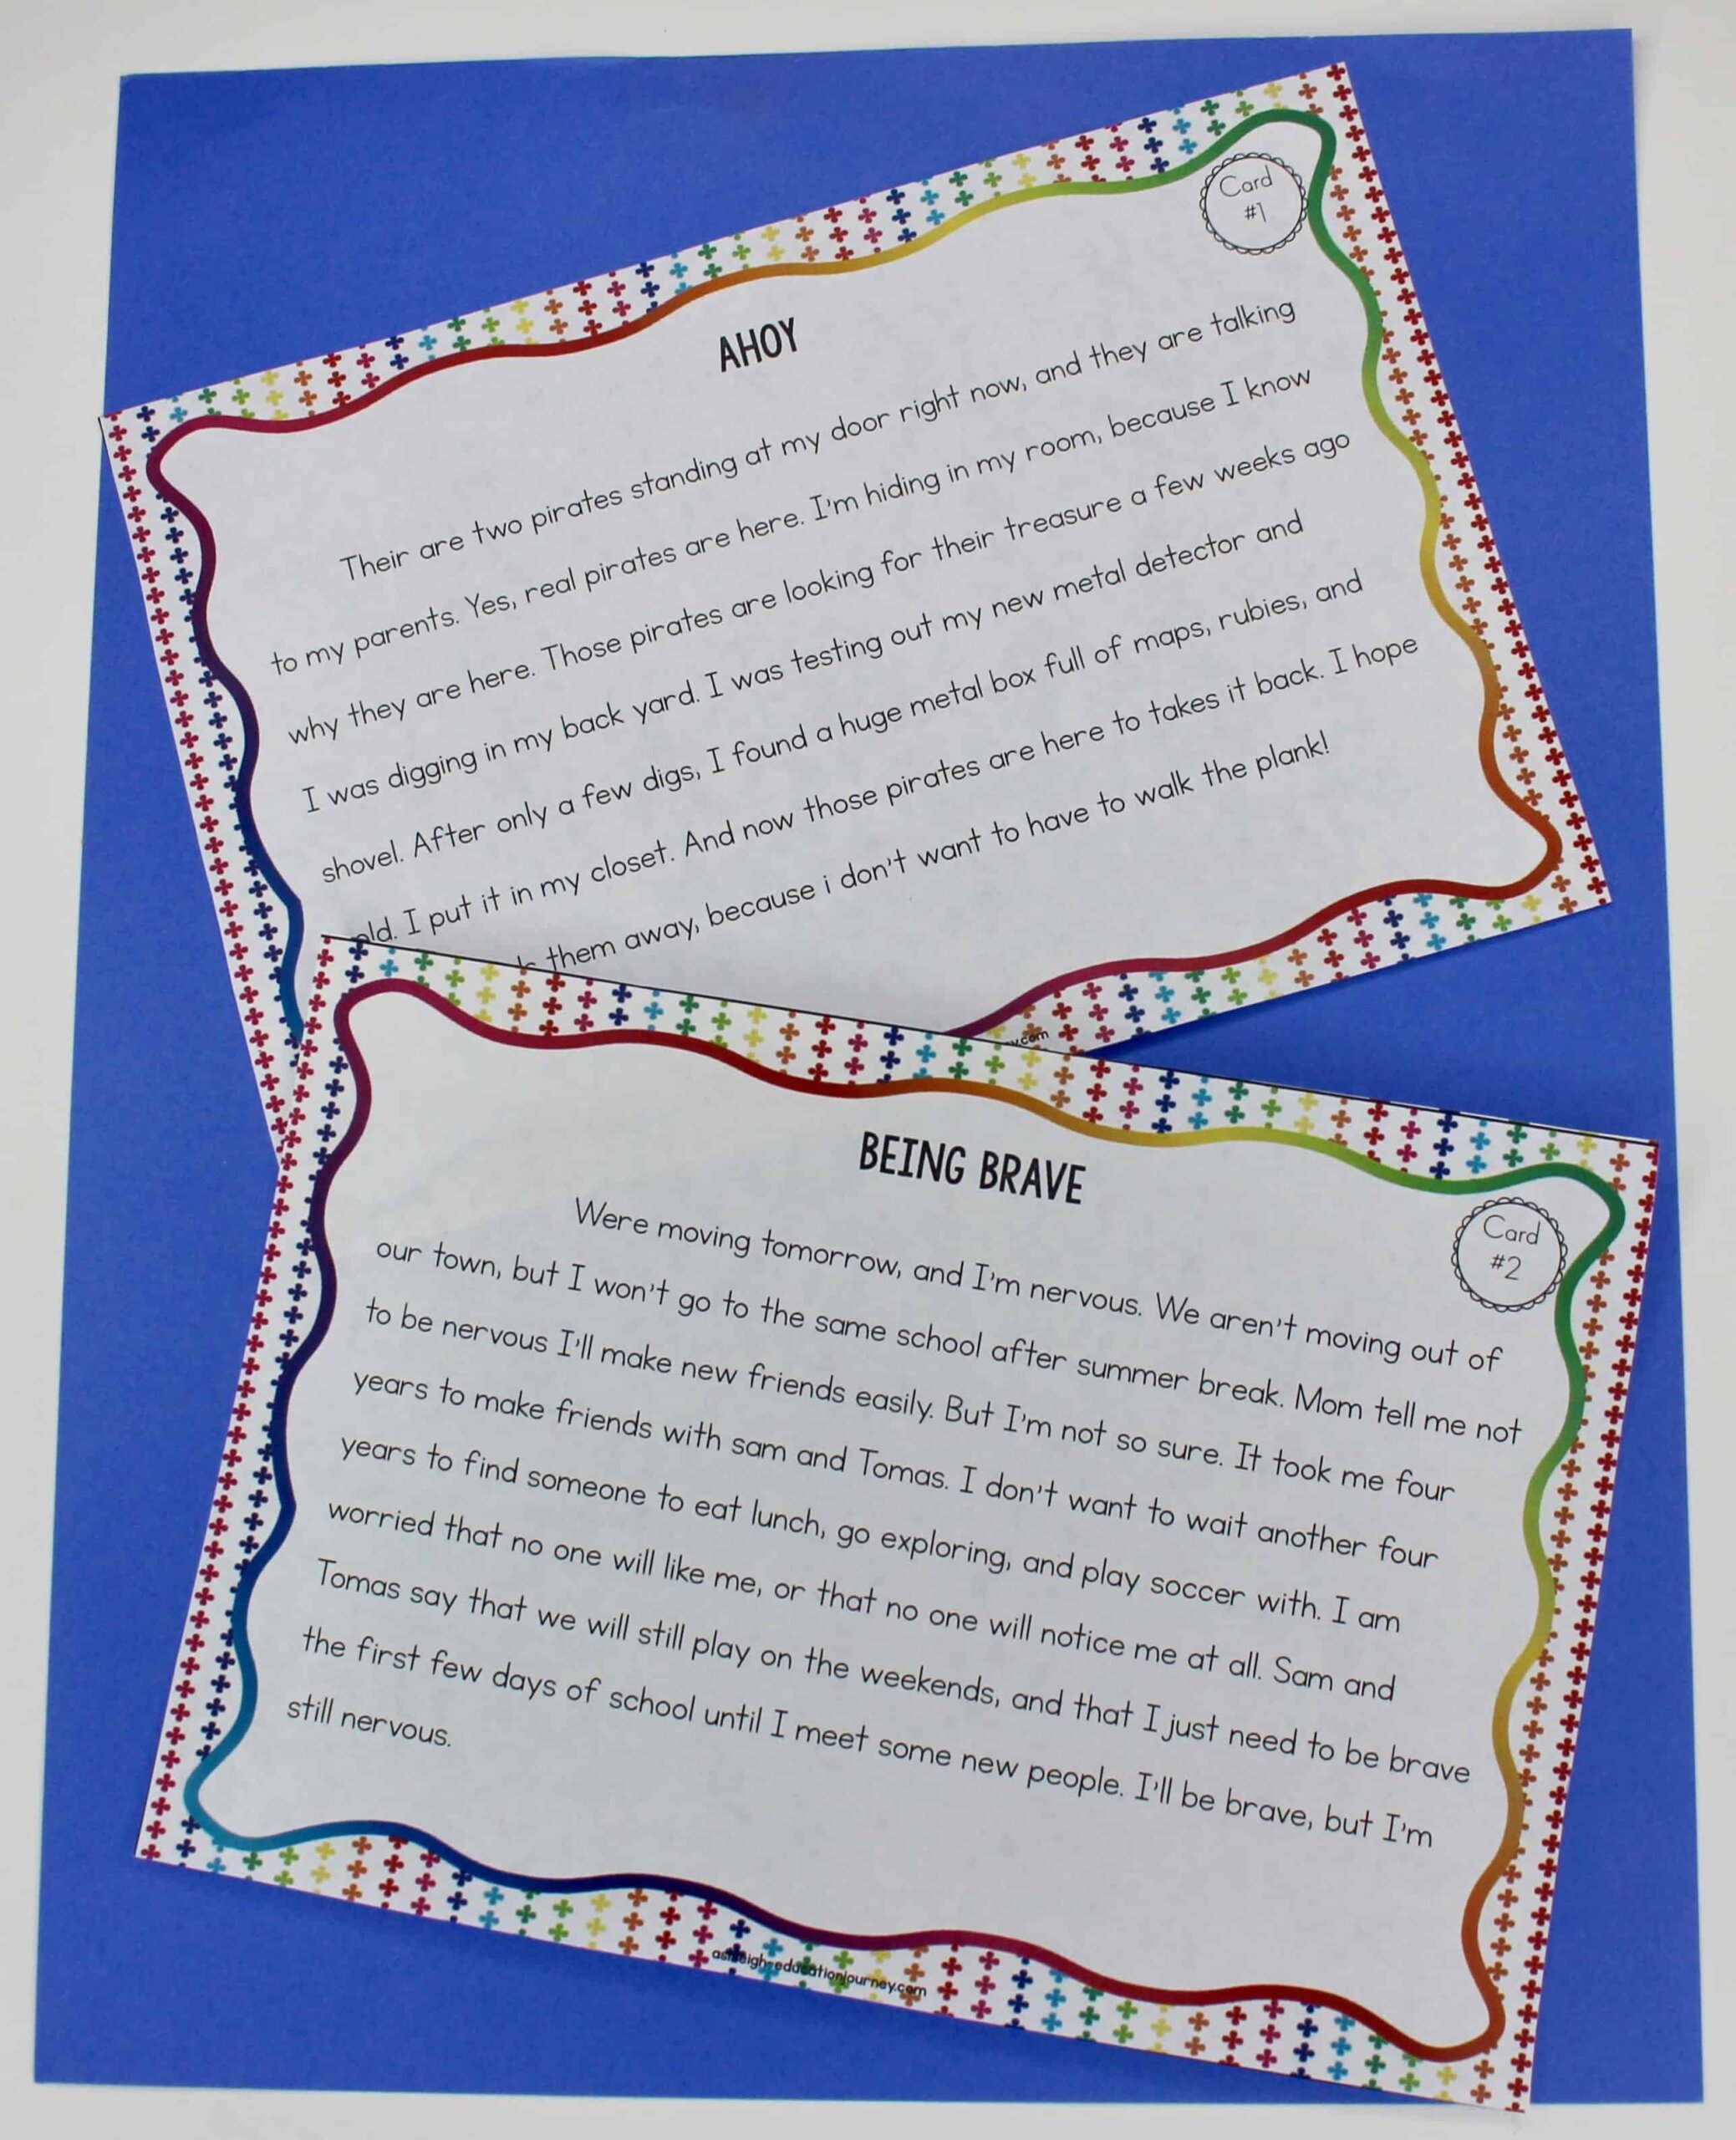 Card
#1
AHOY
Their are two pirates standing at my door right now, and they are talking
to my parents. Yes, real pirates are here. I'm hiding in my room, because I know
why they are here. Those pirates are looking for their treasure a few weeks ago
I was digging in my back yard. I was testing out my new metal detector and
shovel. After only a few digs, I found a huge metal box full of maps, rubies, and
I put it in my closet. And now those pirates are here to takes it back. I hope
them away, because i don't want to have to walk the plank!
BEING BRAVE
Card
#2
Were moving tomorrow, and I'm nervous. We aren't moving out of
our town, but I won't go to the same school after summer break. Mom tell me not
to be nervous I'll make new friends easily. But I'm not so sure. It took me four
years to make friends with sam and Tomas. I don't want to wait another four
years to find someone to eat lunch, go exploring, and play soccer with. I am
worried that no one will like me, or that no one will notice me at all. Sam and
Tomas say that we will still play on the weekends, and that I just need to be brave
the first few days of school until I meet some new people. I'll be brave, but I'm
still nervous.
ashleigh-educationjourney.com